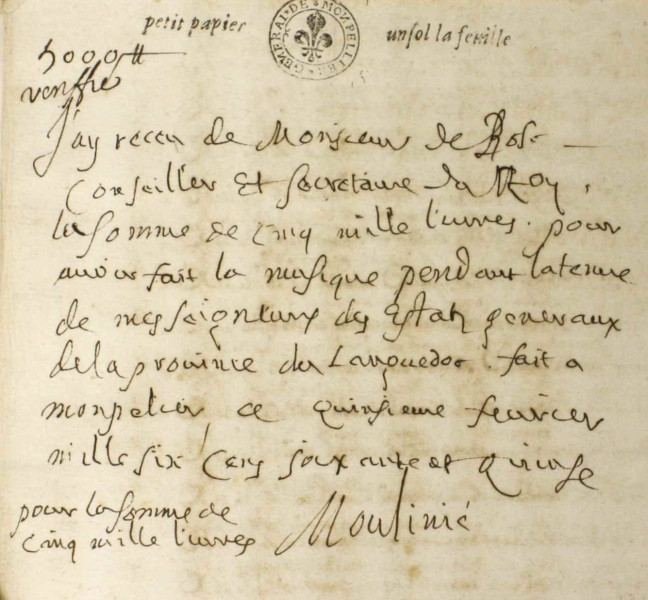 petit papier
GENERAL·DE·MONPELLIER
un sol la feuille
5000 ₶
veriffié
J'ay receu de Monsieur de Rose
Conseiller Et secretaire du Roy,
la somme de Cinq mille livres. pour
avoir fait la musique pendant la tenue
de messeigneurs des Estatz generaux
de la province du Languedoc. fait a
monpelier, ce quinsieme feurier
mille six Cens soixante et quinse
pour la somme de
Cinq mille livres
Moulinié